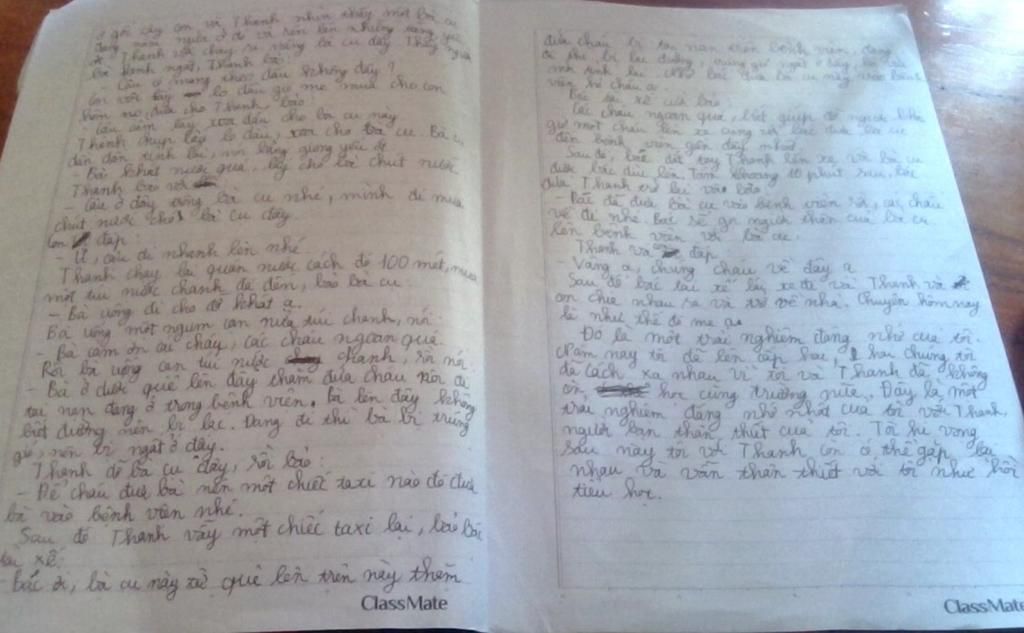 ở gốc cây con và Thanh nhìn thấy một bà cụ
đang nằm ngửa ở đó và rên lên những tiếng yếu
ớt. Thanh và chạy ra nâng bà cụ dậy. Thấy người
bà lạnh ngắt, Thanh bảo:
- Cậu có mang theo dầu không đấy?
Con vội lấy lọ dầu gió mẹ mua cho con
hôm nọ, đưa cho Thanh, bảo:
- Cậu cầm lấy, xoa dầu cho bà cụ này.
Thanh chụp lấy lọ dầu, xoa cho bà cụ. Bà cụ
dần dần tỉnh lại, nói bằng giọng yếu ớt
- Bà khát nước quá, lấy cho bà chút nước.
Thanh bảo với
- Cậu ở đây trông bà cụ nhé, mình đi mua
chút nước cho bà cụ đây.
Con đáp:
- Ừ, cậu đi nhanh lên nhé.
Thanh chạy lại quán nước cách đó 100 mét, mua
một túi nước chanh đá đến, bảo bà cụ.
- Bà uống đi cho đỡ khát ạ.
Bà uống một ngụm cạn nửa túi chanh, nói:
- Bà cảm ơn các cháu, các cháu ngoan quá.
Rồi bà uống cạn túi nước chanh, rồi nói:
- Bà ở dưới quê lên đây thăm đứa cháu nội bị
tai nạn đang ở trong bệnh viện. Bà lên đây không
biết đường nên bị lạc. Đang đi thì bà bị trúng
gió, nên bị ngất ở đây.
Thanh đỡ bà cụ dậy, rồi bảo:
- Để cháu đưa bà lên một chiếc taxi nào đó đưa
bà vào bệnh viện nhé.
Sau đó Thanh vẫy một chiếc taxi lại, bảo bác
tài xế:
Bác ơi, bà cụ này từ quê lên trên này thăm
đứa cháu bị tai nạn trên bệnh viện, đang
đi thì bị lạc đường, trúng gió ngất ở đây, bà vừa
mới tỉnh lại. Nhờ bác đưa bà cụ này vào bệnh
viện hộ cháu ạ.
Bác tài xế cười bảo:
- Các cháu ngoan quá, biết giúp đỡ người khác
giờ một cháu lên xe cùng với bác đưa bà cụ
đến bệnh viện gần đây nhất.
Sau đó, bác dắt tay Thanh lên xe và bà cụ
được bác dìu lên. Tầm khoảng 10 phút sau, bác
đưa Thanh trở lại và bảo:
- Bác đã đưa bà cụ vào bệnh viện rồi, các cháu
về đi nhé. Bác sẽ gọi người thân của bà cụ
lên bệnh viện với bà cụ.
Thanh và con đáp
- Vâng ạ, chúng cháu về đây ạ.
Sau đó bác tài xế lấy xe đi và Thanh và
con chia nhau ra và trở về nhà. Chuyện hôm nay
là như thế đó mẹ ạ.
Đó là một trải nghiệm đáng nhớ của tôi.
Năm nay tôi đã lên cấp hai, hai chúng tôi
đã cách xa nhau vì tôi và Thanh đã không
còn học cùng trường nữa. Đấy là một
trải nghiệm đáng nhớ nhất của tôi với Thanh,
người bạn thân thiết của tôi. Tôi hi vọng
sau này tôi với Thanh còn có thể gặp lại
nhau và vẫn thân thiết với tôi như hồi
tiểu học.
ClassMate
ClassMate